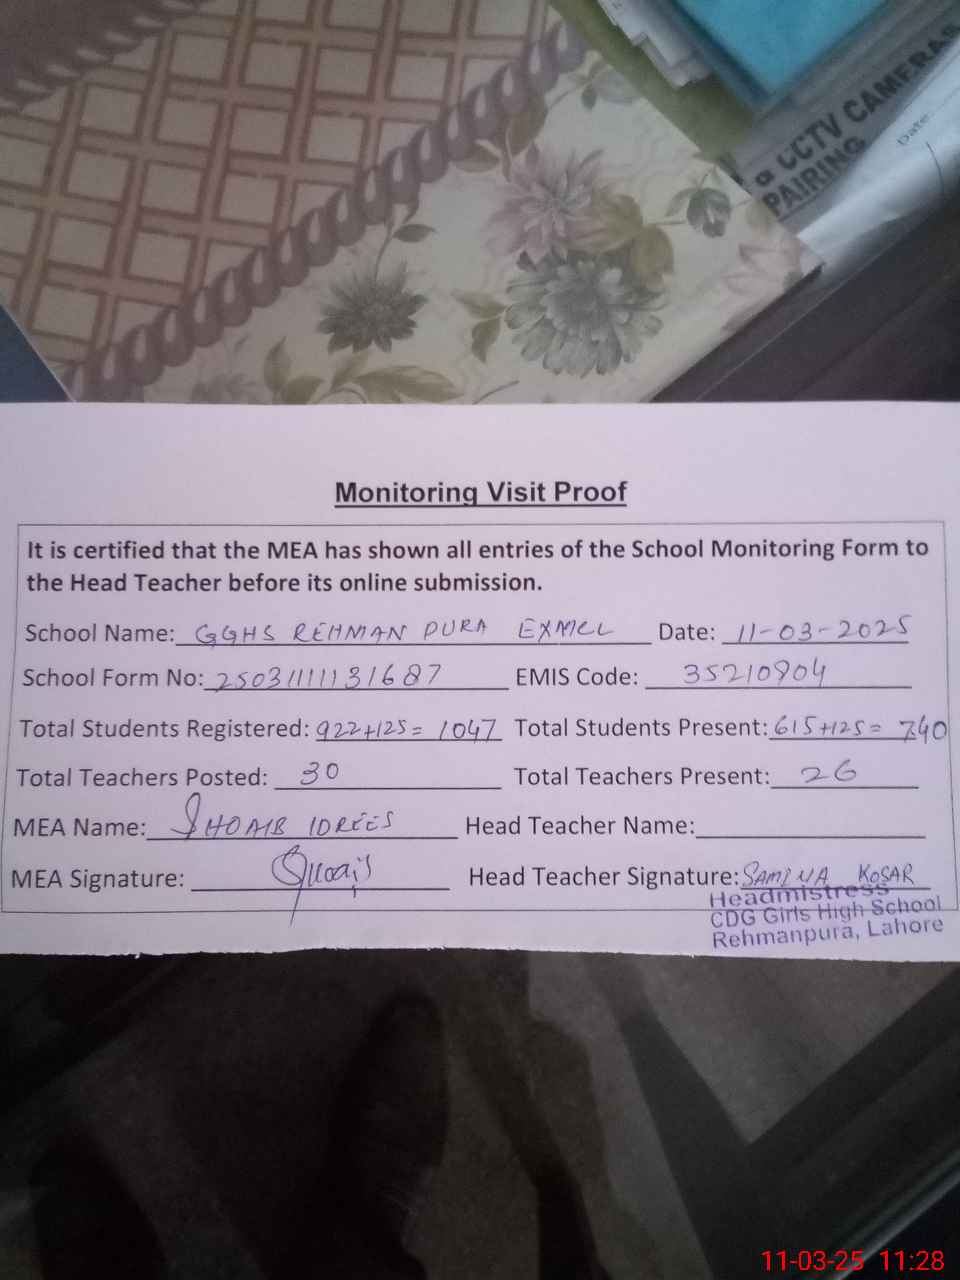 a CCTV CAMERAS
PAIRING
Date:
Monitoring Visit Proof
It is certified that the MEA has shown all entries of the School Monitoring Form to
the Head Teacher before its online submission.
School Name: GGHS REHMAN PURA EXMCL Date: 11-03-2025
School Form No: 25031111131687 EMIS Code: 35210904
Total Students Registered: 922+125= 1047 Total Students Present: 615+125= 740
Total Teachers Posted: 30 Total Teachers Present: 26
MEA Name: SHOAIB IDREES Head Teacher Name:
MEA Signature: Shoaib Head Teacher Signature: SAMINA KOSAR
Headmistress
CDG Girls High School
Rehmanpura, Lahore
11-03-25 11:28